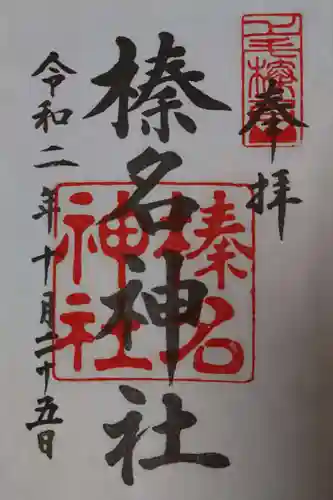 奉拝
榛名神社
令和二年十月二十五日
榛名
神社